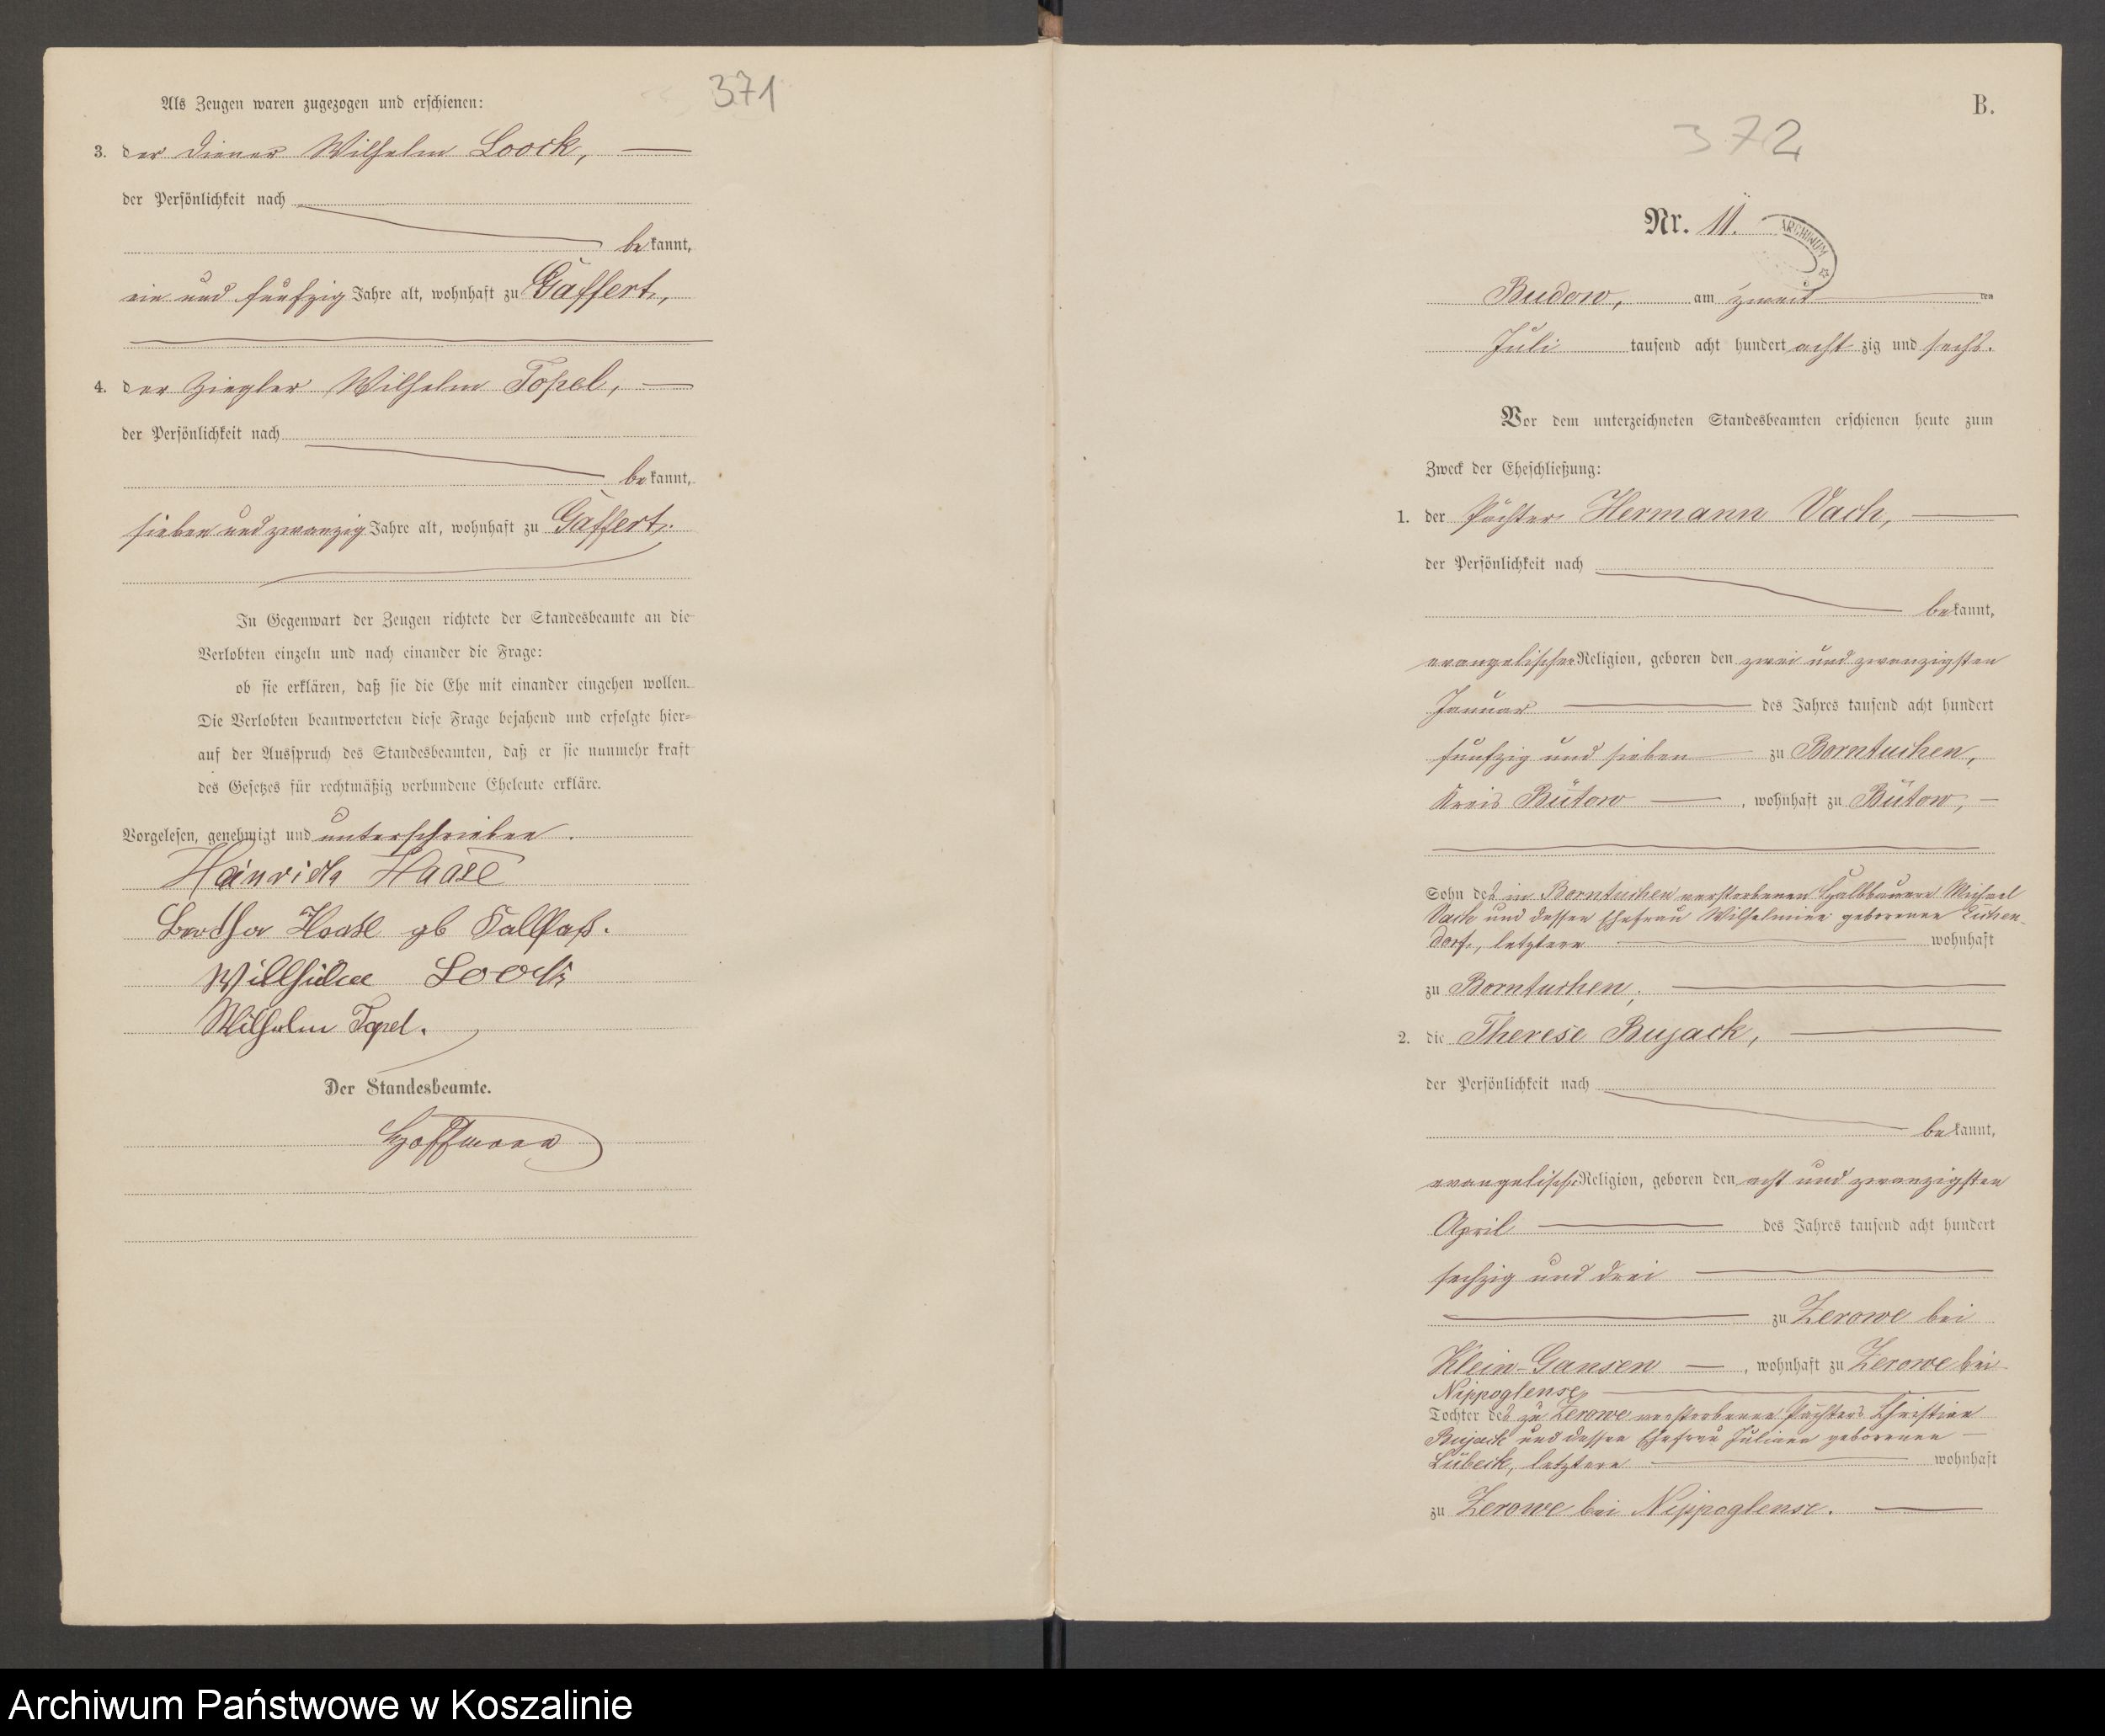 371
Als Zeugen waren zugezogen und erschienen:
3. der Diener Wilhelm Loock,
der Persönlichkeit nach
bekannt,
ein und fünfzig Jahre alt, wohnhaft zu Gaffert,
4. der Ziegler Wilhelm Topel,
der Persönlichkeit nach
bekannt,
sieben und zwanzig Jahre alt, wohnhaft zu Gaffert.
In Gegenwart der Zeugen richtete der Standesbeamte an die
Verlobten einzeln und nach einander die Frage:
ob sie erklären, daß sie die Ehe mit einander eingehen wollen.
Die Verlobten beantworteten diese Frage bejahend und erfolgte hier-
auf der Ausspruch des Standesbeamten, daß er sie nunmehr kraft
des Gesetzes für rechtmäßig verbundene Eheleute erkläre.
Vorgelesen, genehmigt und unterschrieben.
Heinrich Haase
Bertha Haase gb
Loock
Wilhelm Topel.
Der Standesbeamte.
Hoffmann
B.
372
Nr. 11.
ARCHIWUM
Budow, am zweiten
Juli tausend acht hundert achtzig und sechs.
Vor dem unterzeichneten Standesbeamten erschienen heute zum
Zweck der Eheschließung:
1. der Pächter Hermann Vach,
der Persönlichkeit nach
bekannt,
evangelischer Religion, geboren den zwei und zwanzigsten
Januar des Jahres tausend acht hundert
fünfzig und sieben zu Borntuchen,
Kreis Bütow, wohnhaft zu Bütow,
Sohn des in Borntuchen verstorbenen Halbbauern Michael
Vach und dessen Ehefrau Wilhelmine geborenen
dorf, letztere wohnhaft
zu Borntuchen;
2. die Therese Bujack,
der Persönlichkeit nach
bekannt,
evangelischer Religion, geboren den acht und zwanzigsten
April des Jahres tausend acht hundert
sechzig und drei
zu Zerowe bei
Klein-Gansen, wohnhaft zu Zerowe bei
Nippoglense,
Tochter des zu Zerowe verstorbenen Pächters Christian
Bujack und dessen Ehefrau Juliane geborenen
Lübeck, letztere wohnhaft
zu Zerowe bei Nippoglense.
Archiwum Państwowe w Koszalinie